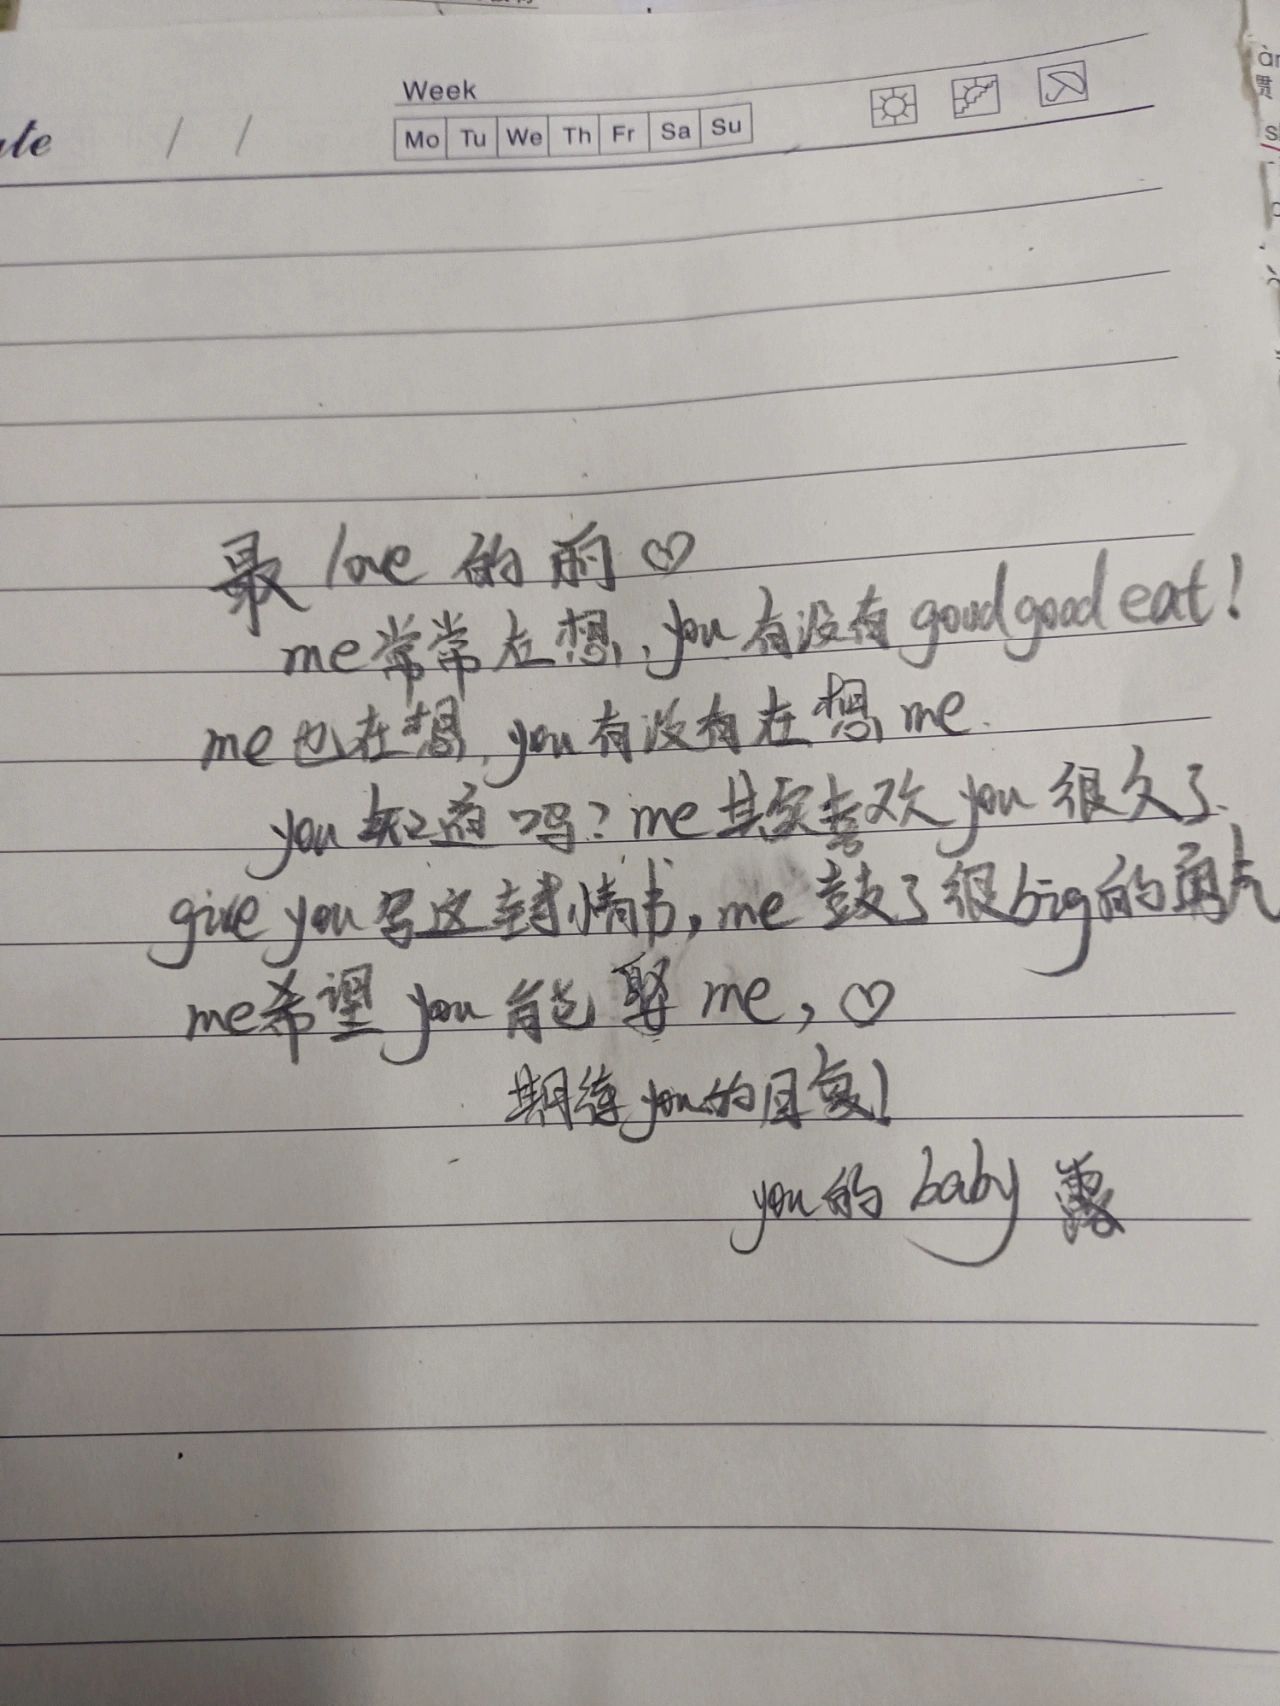 Week
Mo Tu We Th Fr Sa Su
/ /
最 love 的 丽 ♡
me常常在想，you有没有goodgood eat！
me也在想，you有没有在想me.
you知道吗？me其实喜欢you很久了.
give you写这封情书，me鼓了很big的勇气
me希望you能娶me，♡
期待you的回复！
you的 baby